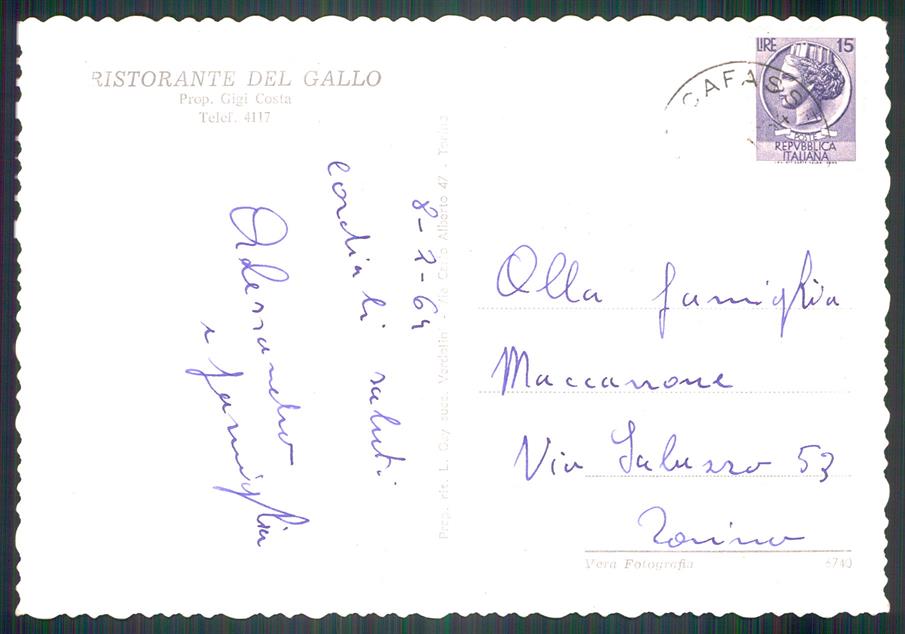 RISTORANTE DEL GALLO
Prop. Gigi Costa
Telef. 4117
8-2-64
cordiali saluti
Alessandro
e famiglia
Prop. ris. L. Guy succ. Verdolin - Via Carlo Alberto 47 - Torino
CAFASS
LIRE 15
POSTE
REPVBBLICA
ITALIANA
Alla famiglia
Maccarrone
Via Saluzzo 53
Torino
Vera Fotografia
6740